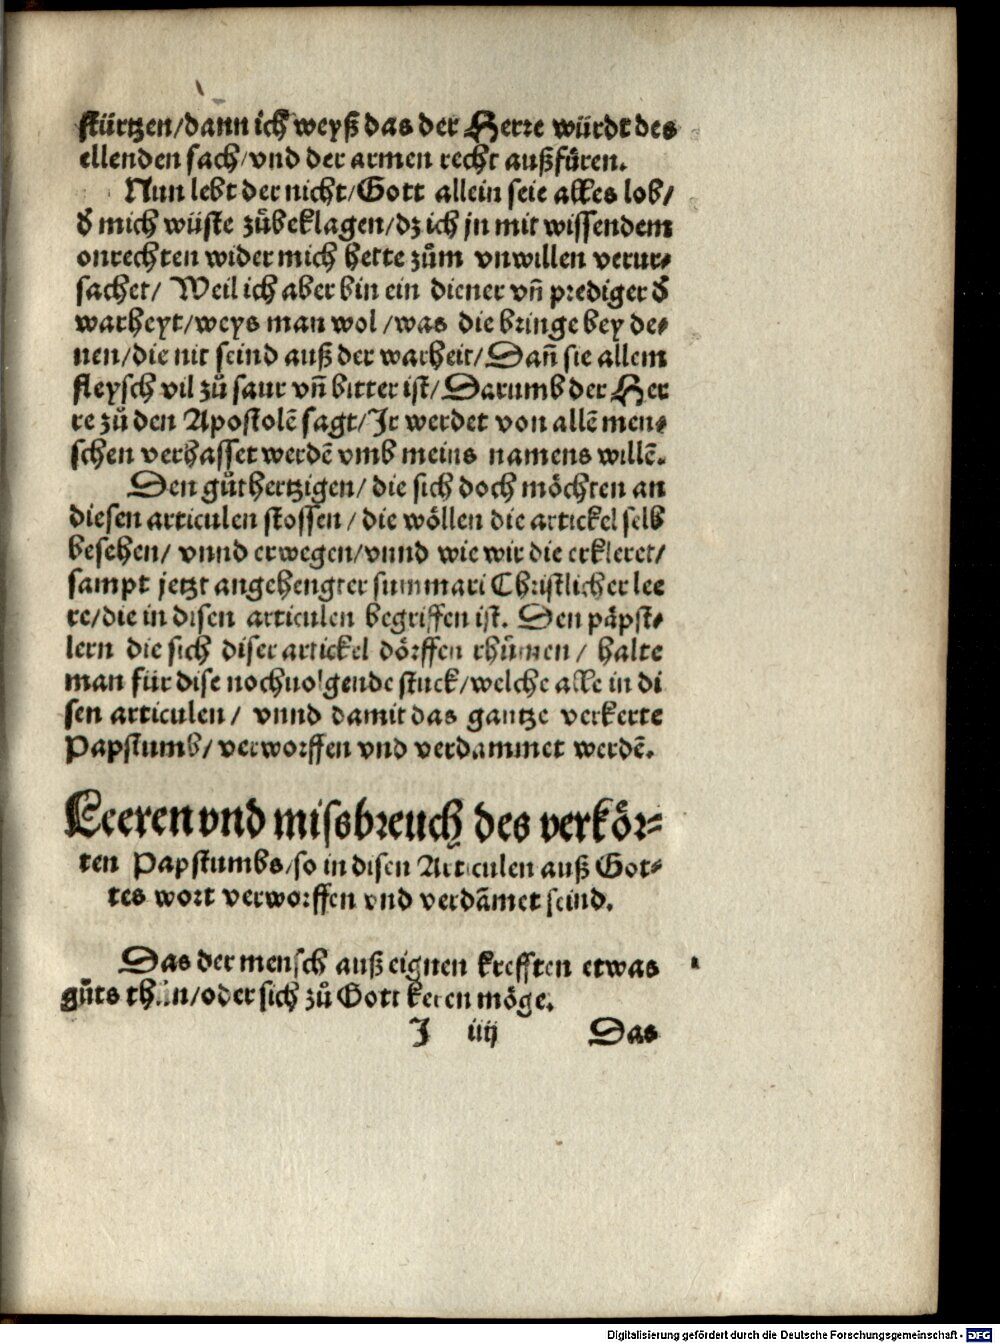 stürtzen/dann ich weyß das der Herre würdt des
ellenden sach/vnd der armen recht außfüren.
Nun lebt der nicht/Gott allein seie alles lob/
d̕ mich wüste zůbeklagen/dz ich jn mit wissendem
onrechten wider mich hette zům vnwillen verur⸗
sachet/ Weil ich aber bin ein diener vñ prediger d̕
warheyt/weys man wol /was die bringe bey de⸗
nen/die nit seind auß der warheit/Dañ sie allem
fleysch vil zů saur vñ bitter ist/Darumb der Her
re zů den Apostolē sagt/Ir werdet von allē men⸗
schen verhasset werdē vmb meins namens willē.
Den gůthertzigen/ die sich doch möchten an
diesen articulen stossen / die wöllen die artickel selb
besehen/ vnnd erwegen/vnnd wie wir die erkleret/
sampt jetzt angehengter summari Christlicher lee
re/die in disen articulen begriffen ist. Den päpst⸗
lern die sich diser artickel dörffen rhůmen / halte
man für dise nochuolgende stuck/welche alle in di
sen articulen/ vnnd damit das gantze verkerte
Papstumb/ verworffen vnd verdammet werdē.
Leeren vnd missbreuch des verkör⸗
ten Papstumbs/so in disen Articulen auß Got⸗
tes wort verworffen vnd verdāmet seind.
Das der mensch auß eignen krefften etwas 1
gůts thůn/oder sich zů Gott keren möge.
I iiij Das
Digitalisierung gefördert durch die Deutsche Forschungsgemeinschaft - DFG